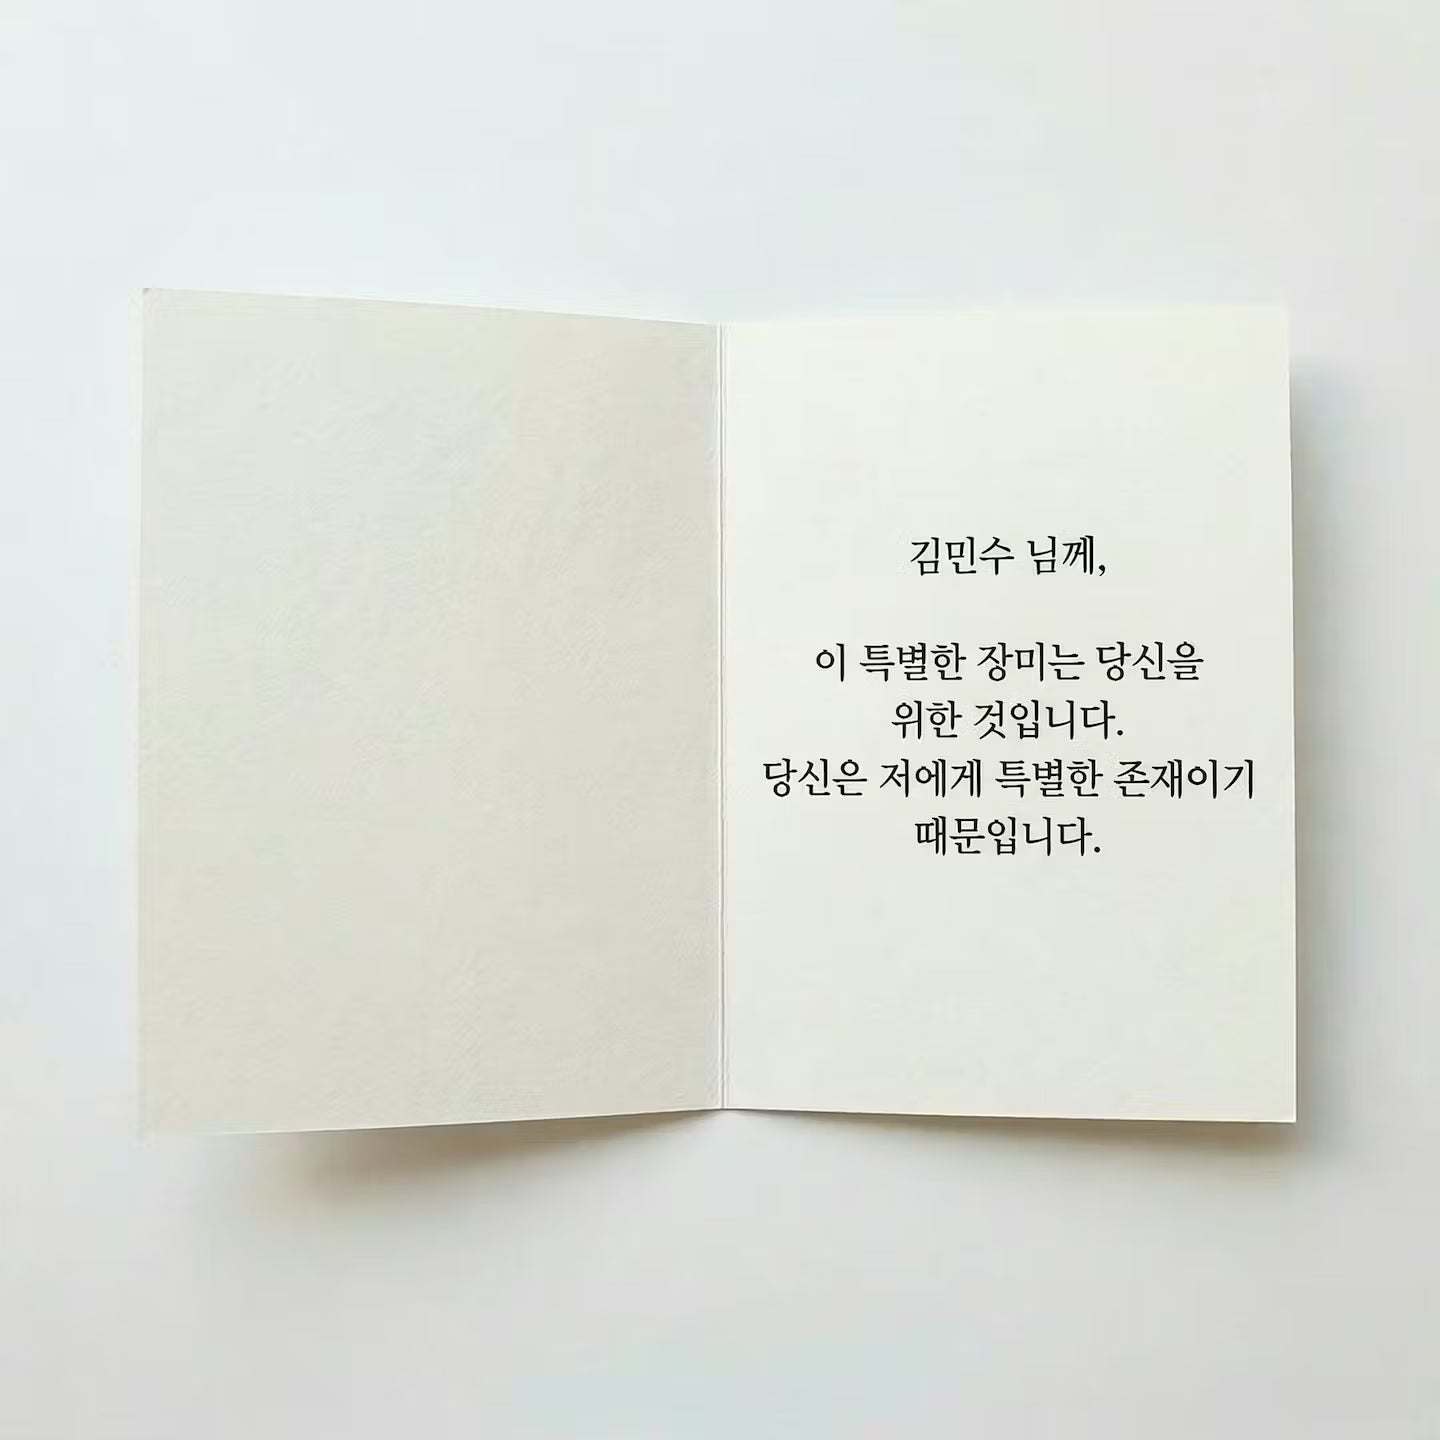 김민수 님께,
이 특별한 장미는 당신을
위한 것입니다.
당신은 저에게 특별한 존재이기
때문입니다.